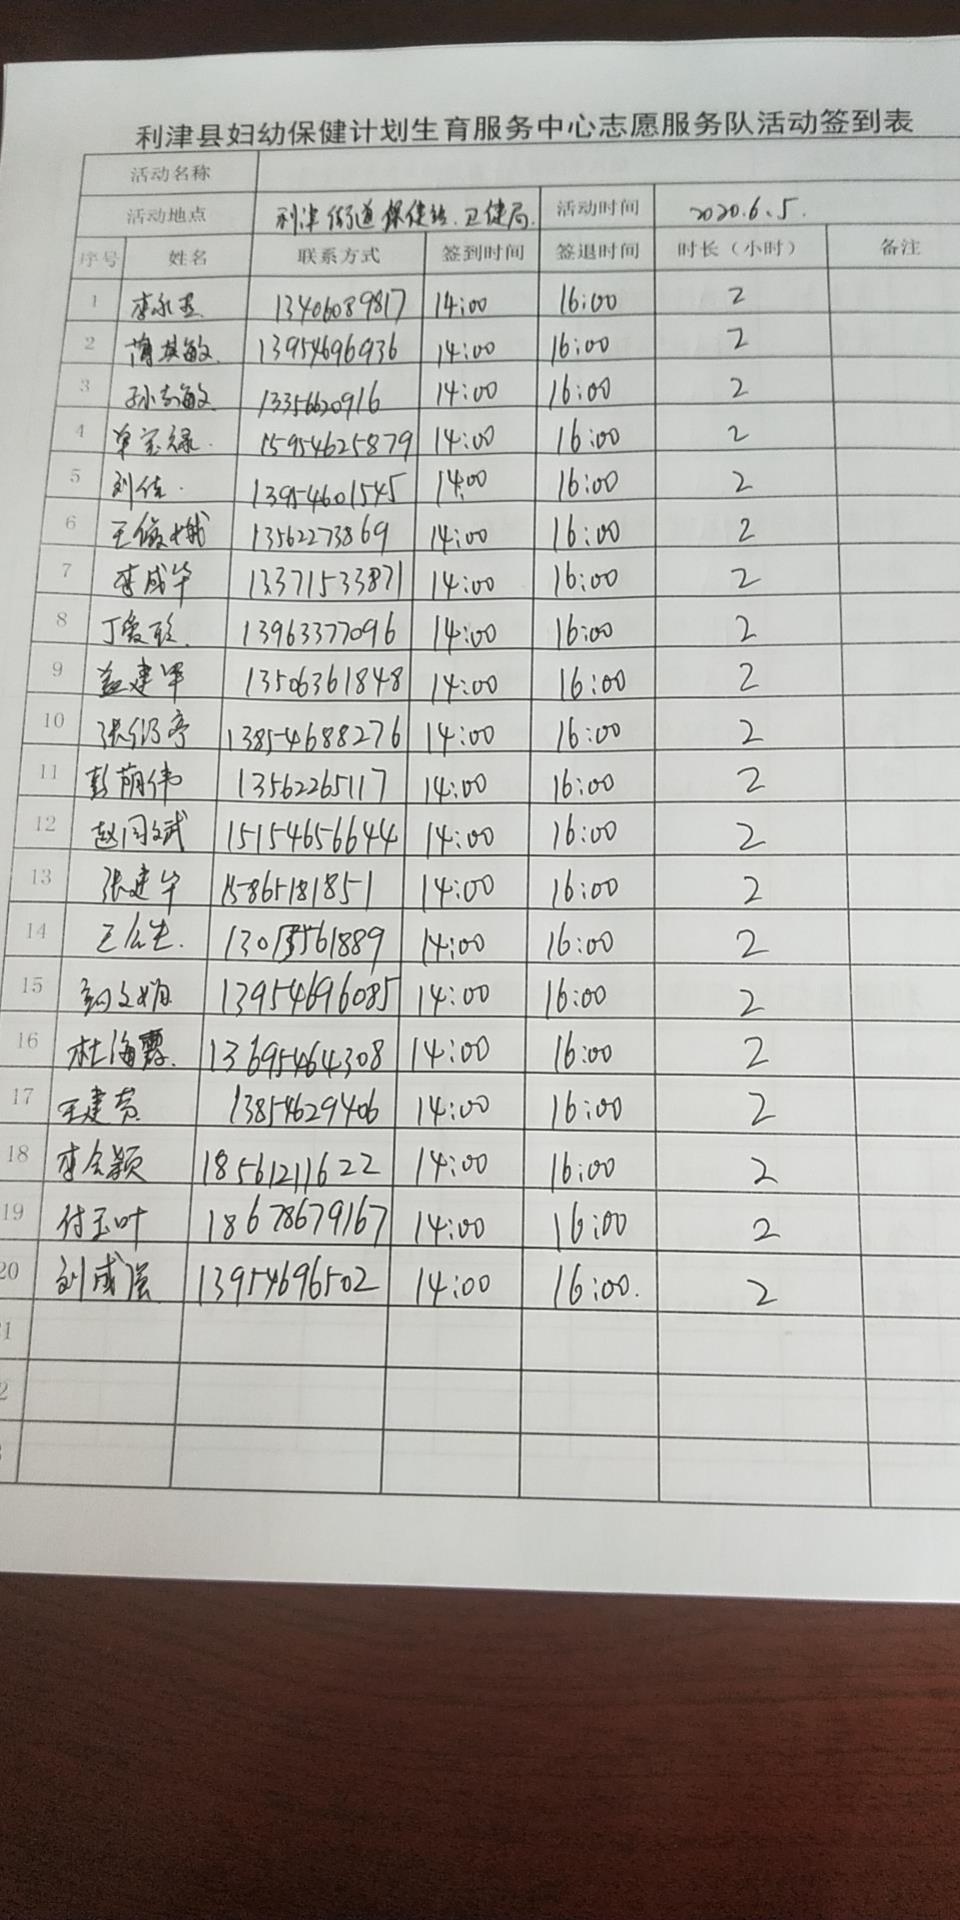 利津县妇幼保健计划生育服务中心志愿服务队活动签到表
活动名称
活动地点 利津街道保健站.卫健局. 活动时间 2020.6.5.
序号 姓名 联系方式 签到时间 签退时间 时长（小时） 备注
1 李永 13406089817 14:00 16:00 2
2 敏 13954696936 14:00 16:00 2
3 孙 敏 13356620916 14:00 16:00 2
4 单宝禄 15954625879 14:00 16:00 2
5 刘佳 13954601545 14:00 16:00 2
6 王俊娥 13562273869 14:00 16:00 2
7 李成华 13371533871 14:00 16:00 2
8 丁爱 13963377096 14:00 16:00 2
9 孟建军 13506361848 14:00 16:00 2
10 张 亭 13854688276 14:00 16:00 2
11 彭萌伟 13562265117 14:00 16:00 2
12 赵国斌 15154656644 14:00 16:00 2
13 张建华 15865181851 14:00 16:00 2
14 王 14:00 16:00 2
15 文娟 13954696085 14:00 16:00 2
16 杜海霞 13695464308 14:00 16:00 2
17 王建 13854629406 14:00 16:00 2
18 李会颖 18561211622 14:00 16:00 2
19 付玉叶 18678679167 14:00 16:00 2
20 刘成强 13954696502 14:00 16:00. 2